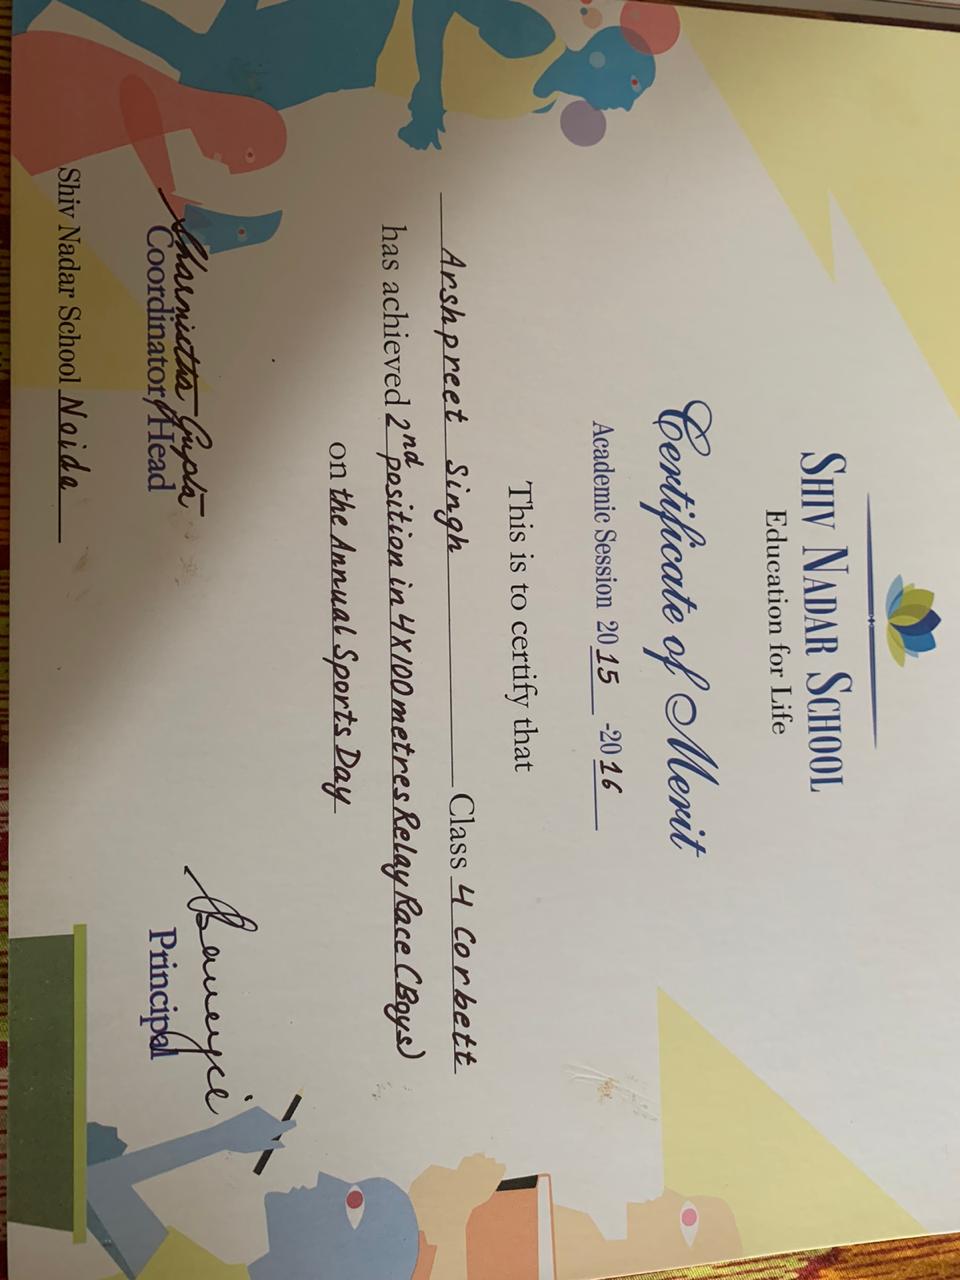 SHIV NADAR SCHOOL
Education for Life
Certificate of Merit
Academic Session 2015 -2016
This is to certify that
Arshpreet Singh Class 4 Corbett
has achieved 2nd position in 4X100 metres Relay Race (Boys)
on the Annual Sports Day
Sharmistha Gupta
Coordinator/Head Principal
Shiv Nadar School Noida